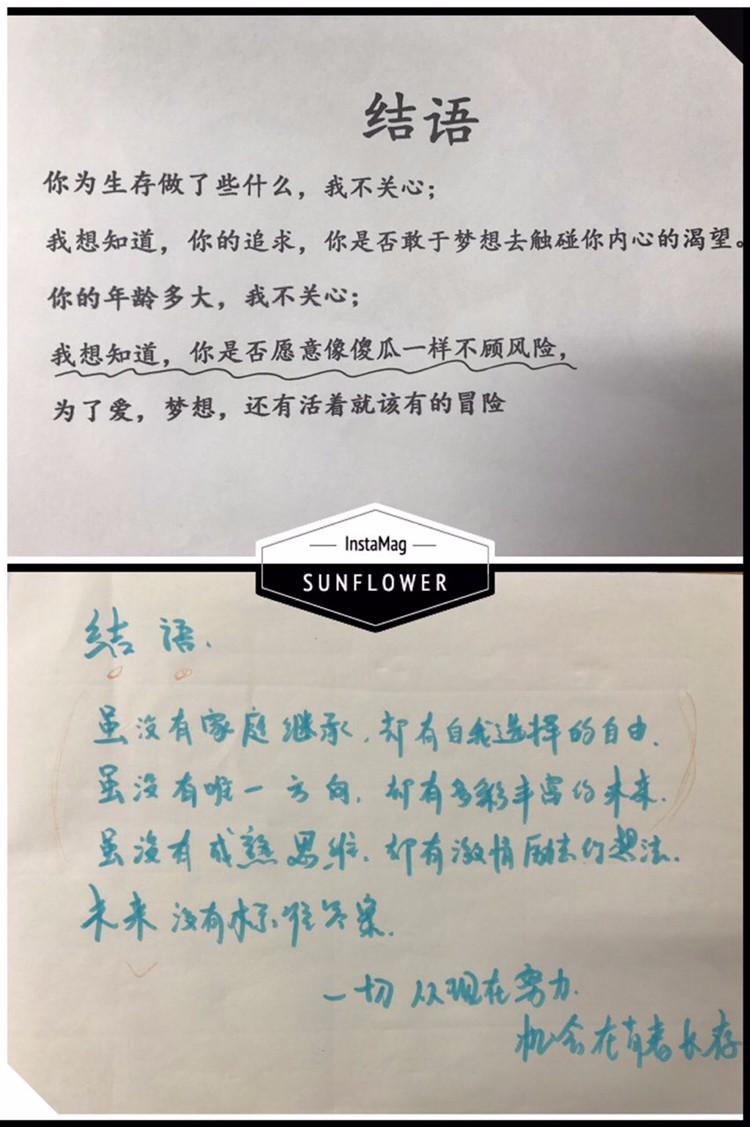 结语
你为生存做了些什么，我不关心；
我想知道，你的追求，你是否敢于梦想去触碰你内心的渴望。
你的年龄多大，我不关心；
我想知道，你是否愿意像傻瓜一样不顾风险，
为了爱，梦想，还有活着就该有的冒险
InstaMag
SUNFLOWER
结语.
虽没有家庭继承.却有自我选择的自由.
虽没有唯一方向.却有多彩丰富的未来.
虽没有成熟思维.却有激情励志的想法.
未来没有标准答案.
一切从现在努力.
机会在青春长存